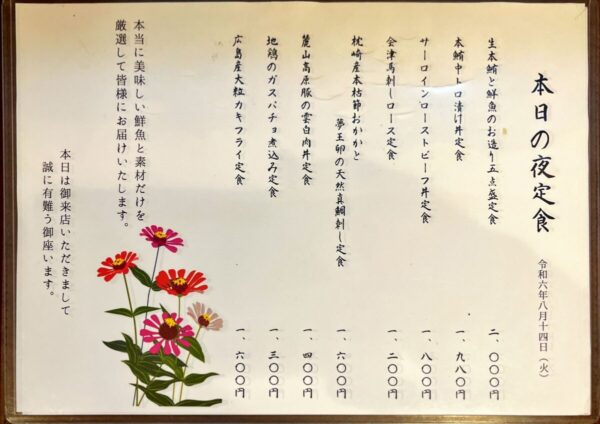 本日の夜定食
令和六年八月十四日（火）
生本鮪と鮮魚のお造り五点盛定食
二、〇〇〇円
本鮪中トロ漬け丼定食
一、九八〇円
サーロインローストビーフ丼定食
一、八〇〇円
会津馬刺しロース定食
一、二〇〇円
枕崎産本枯節おかかと
夢王卵の天然真鯛刺し定食
一、六〇〇円
麓山高原豚の雲白肉丼定食
一、四〇〇円
地鶏のガスパチョ煮込み定食
一、三〇〇円
広島産大粒カキフライ定食
一、六〇〇円
本当に美味しい鮮魚と素材だけを
厳選して皆様にお届けいたします。
本日は御来店いただきまして
誠に有難う御座います。